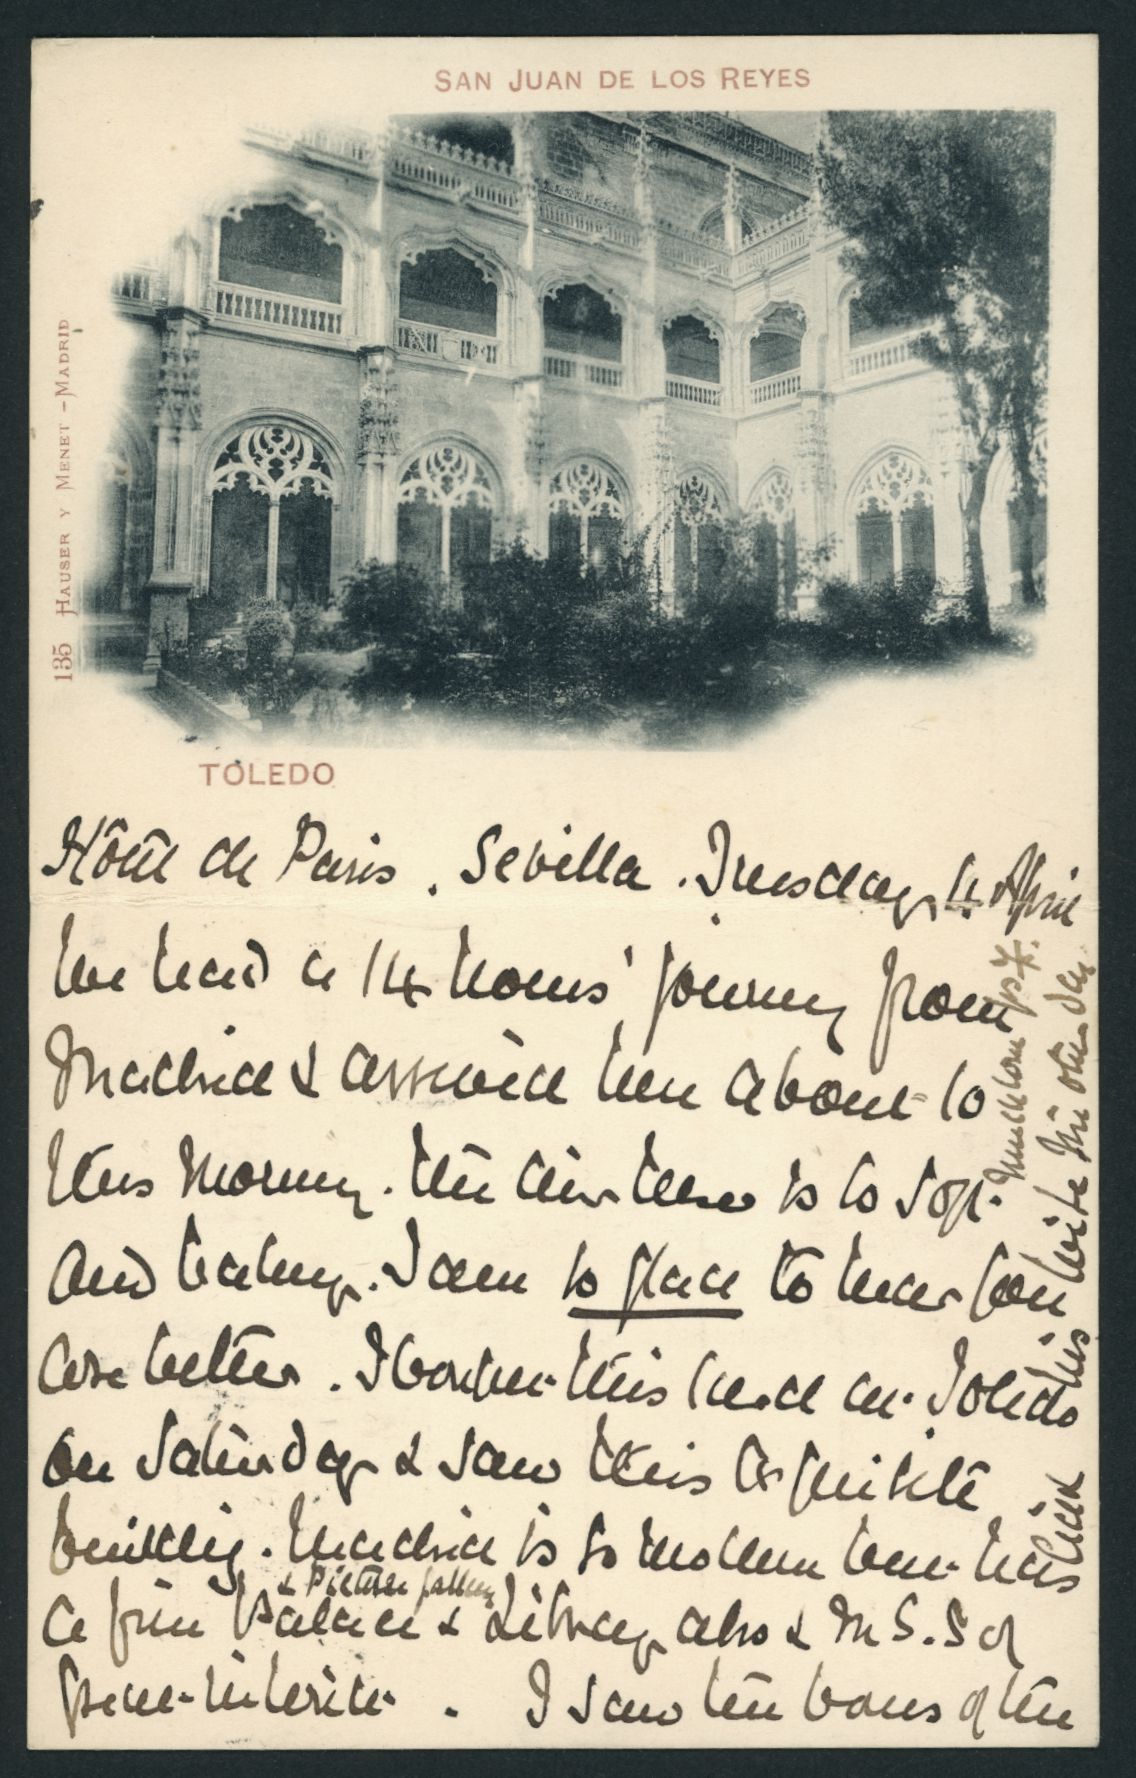 SAN JUAN DE LOS REYES
135 HAUSER Y MENET - MADRID
TOLEDO
Hôtel de Paris. Sevilla. Tuesday, 4 April
We had a 14 hours' journey from
Madrid & arrived here about 10
this morning. The air here is so soft
and balmy. I am so glad to hear you
are better. I bought this card at Toledo
on Saturday & saw this exquisite
building. Madrid is so modern but has
& Picture gallery
a fine Palace & Library also & M.S.S of
great interest. I saw the boxes of the
Much love yrs
write the other day
this